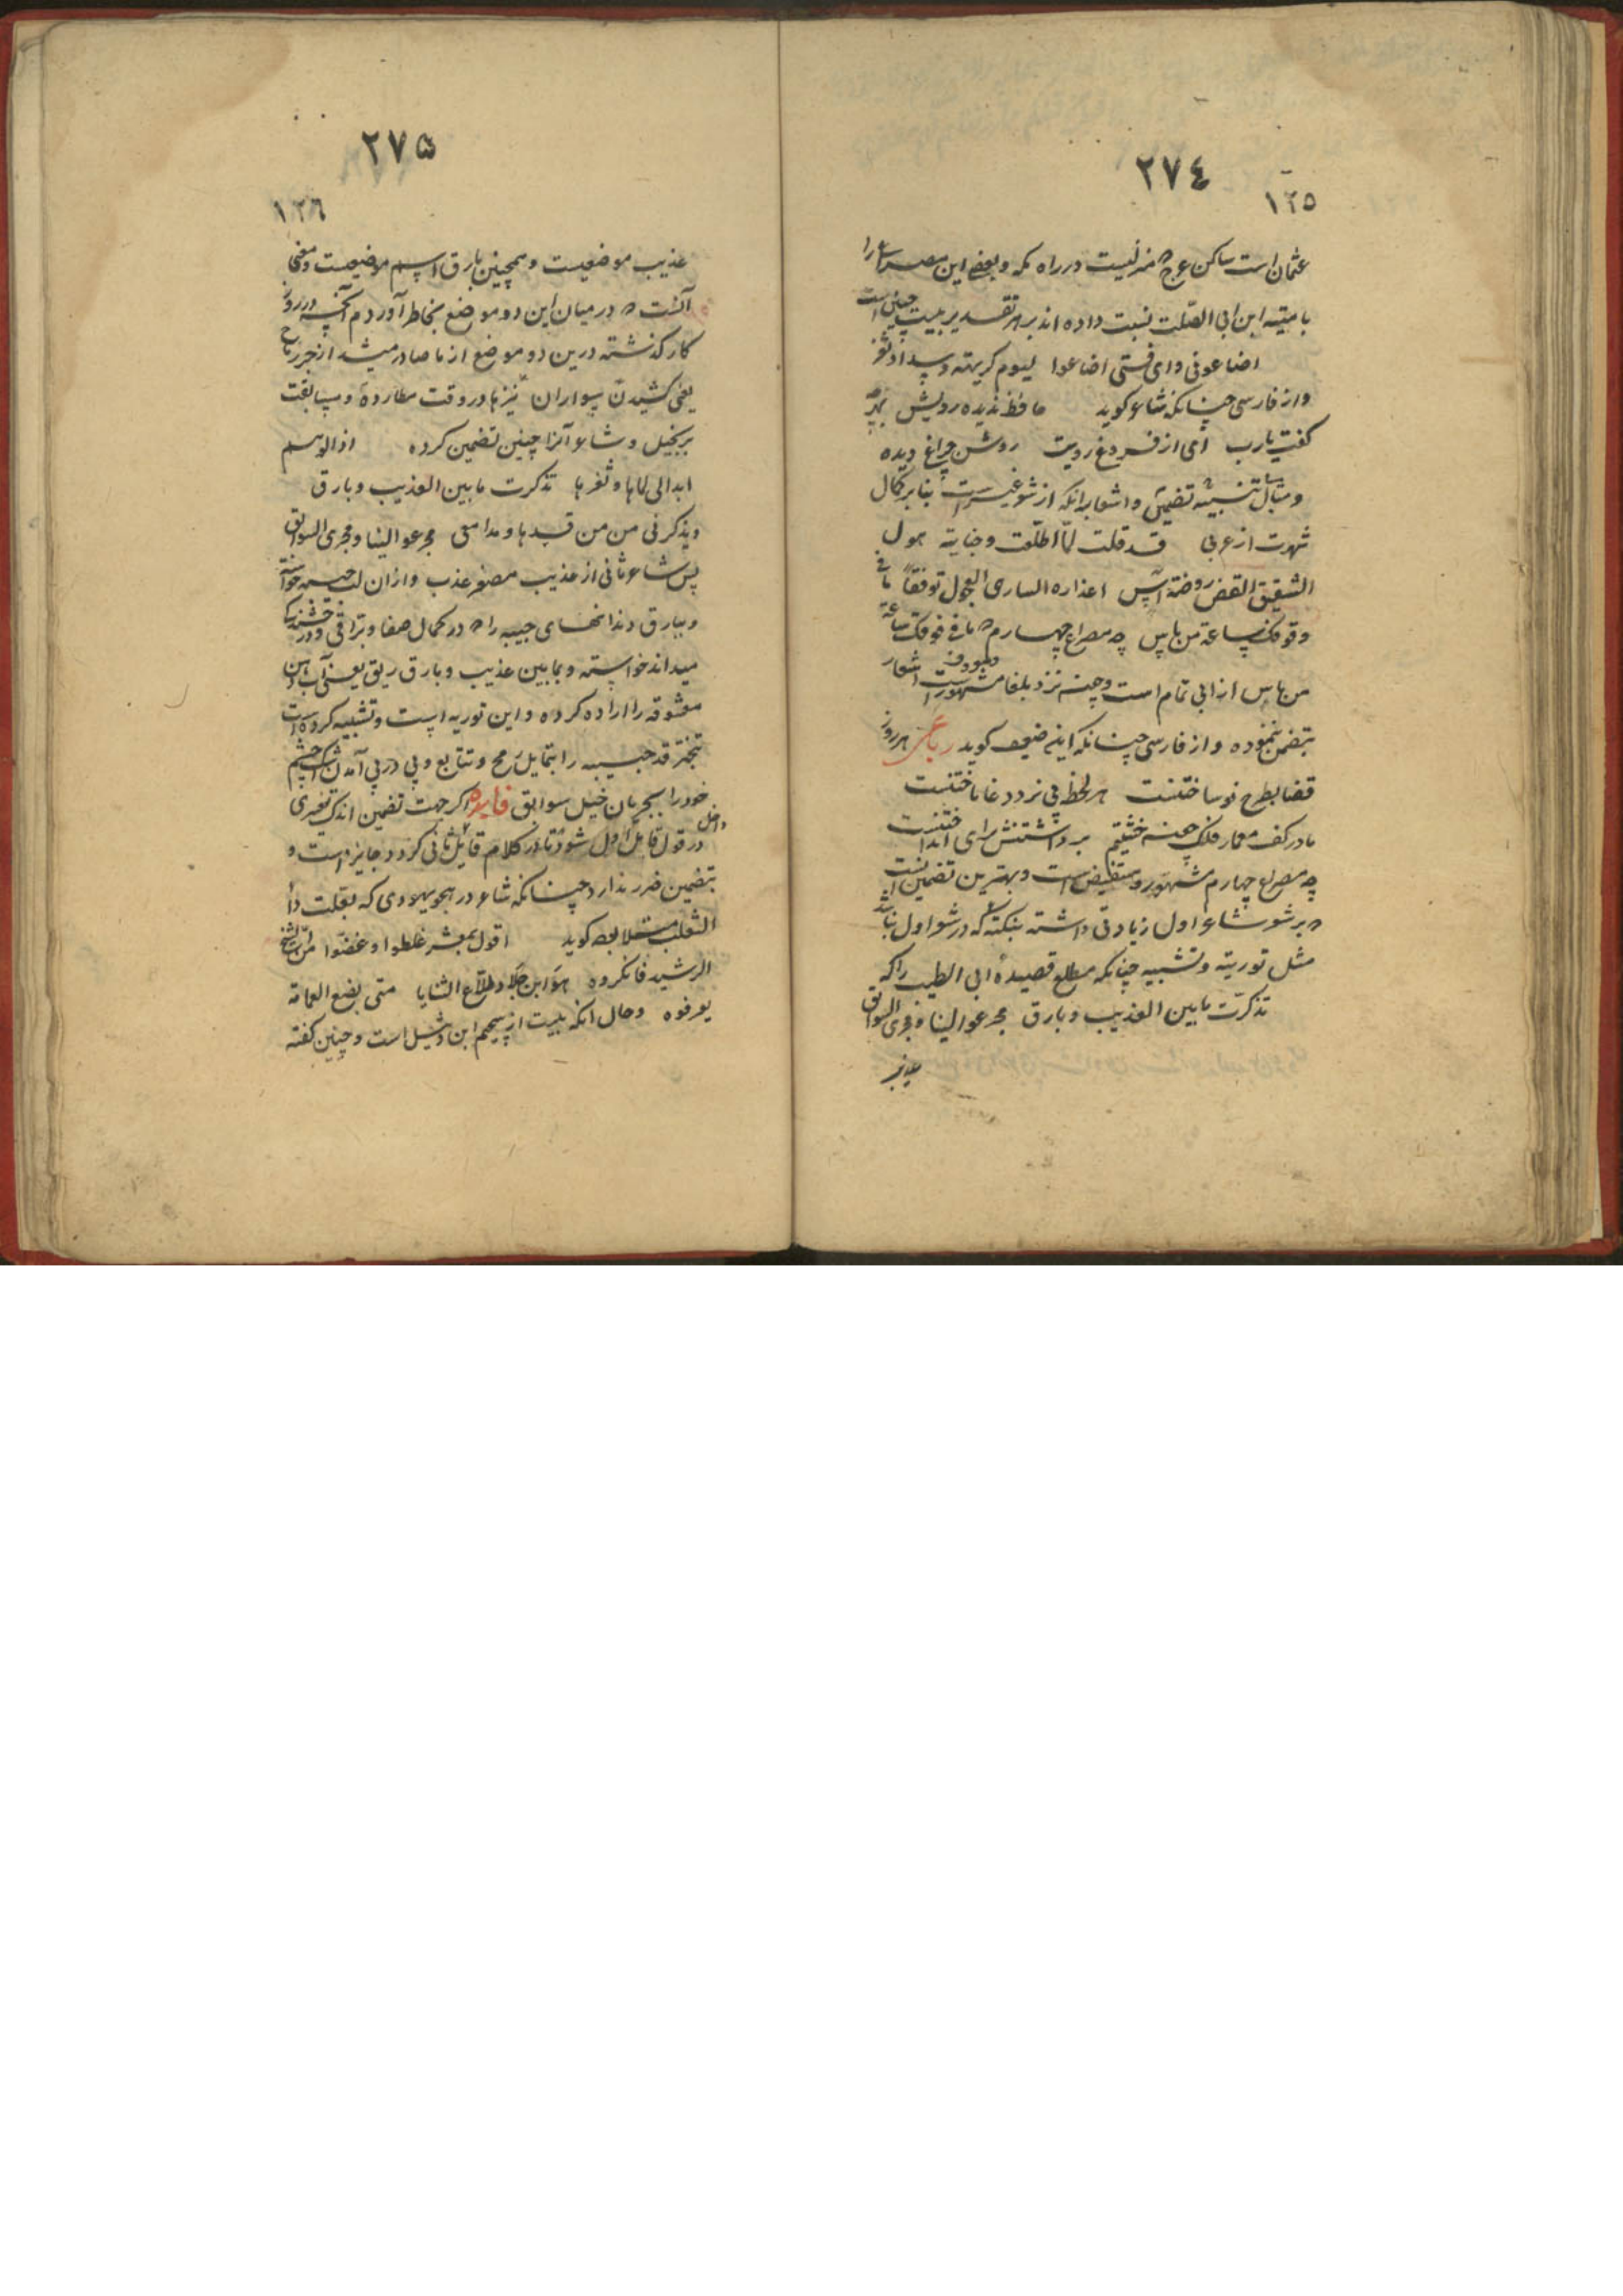 ٢٧٤
١٢٥
عثمان است ساکن عرج که منزلیست در راه مکه و بعضی این مصراع را
بامیّة ابن ابی الصّلت نسبت داده اند بر هر تقدیر بیت چنین است
اضاعونی و ای فتی اضاعوا لیوم کریهة و سداد ثغر
و از فارسی چنانکه شاعر کوید حافظ ندیده رویش
کفت یارب ای از فروغ رویت روشن چراغ دیده
و مثال تنبیه تضمین و اشعار بانکه از شعر غیر است بنا بر کمال
شهرت از عربی قد قلت لمّا اطلعت وجناته حول
الشقیق الغض روضة آس اعذاره الساری العجول توقفاً ما فی
وقوفک ساعة من باس چه مصراع چهارم که ما فی وقوفک ساعة
من باس از ابی تمام است و چون نزد بلغا مشهور و معروف است اشعار
بتضمین ننموده و از فارسی چنانکه این ضعیف کوید رباعی هر روز
قضا بطرح نو ساختنست هر لحظه پی نرد دغا باختنست
ما در کف معمار فلک چون خشتیم برداشتنش برای انداختنست
چه مصراع چهارم مشهور و مستفیض است و بهترین تضمین آنست
که بر شعر شاعر اول زیادتی داشته بنکته که در شعر اول نباشد
مثل توریة و تشبیه چنانکه مطلع قصیدهٔ ابی الطیب را که
تذکّرت ما بین العذیب و بارق مجر عوالینا و مجری السوابق
عذیب
٢٧۵
١٢٦
عذیب موضعیست و همچنین بارق اسم موضعیست و معنی
آنست که در میان این دو موضع بخاطر آوردم آنچه در روز
کار کذشته درین دو موضع از ما صادر میشد از جر رماح
یعنی کشیدن سواران نیزها در وقت مطارده و مسابقت
بر خیل و شاعر آنرا چنین تضمین کرده اذا الوهم
ابدا لی لماها و ثغرها تذکرت ما بین العذیب و بارق
ویذکرنی من من قدها و مدامعی مجر عوالینا و مجری السوابق
پس شاعر ثانی از عذیب مصغر عذب و ازان لب حبیبه خواسته
و ببارق دندانهای حبیبه را که در کمال صفا و براقی و درخشندکی
میداند خواسته و بما بین عذیب و بارق ریق یعنی آب دهن
معشوقه را اراده کرده و این توریه است و تشبیه کرده است
تبختر قد حبیبه را بتمایل رمح و تتابع و پی در پی آمدن اشک چشم
خود را بجریان خیل سوابق فایده اکر جهت تضمین اندک تغییری
در قول قایل اول شود تا داخل در کلام قایل ثانی کردد جایز است و
بتضمین ضرر ندارد چنانکه شاعر در هجو یهودی که بعلت داء
الثعلب مبتلا بوده کوید اقول لمعشر غلطوا و غضّوا من الشیخ
الرشید فانکروه هو ابن جلا و طلّاع الثنایا متی یضع العمامة
یعرفوه و حال انکه بیت از سحیم ابن وثیل است و چنین کفته